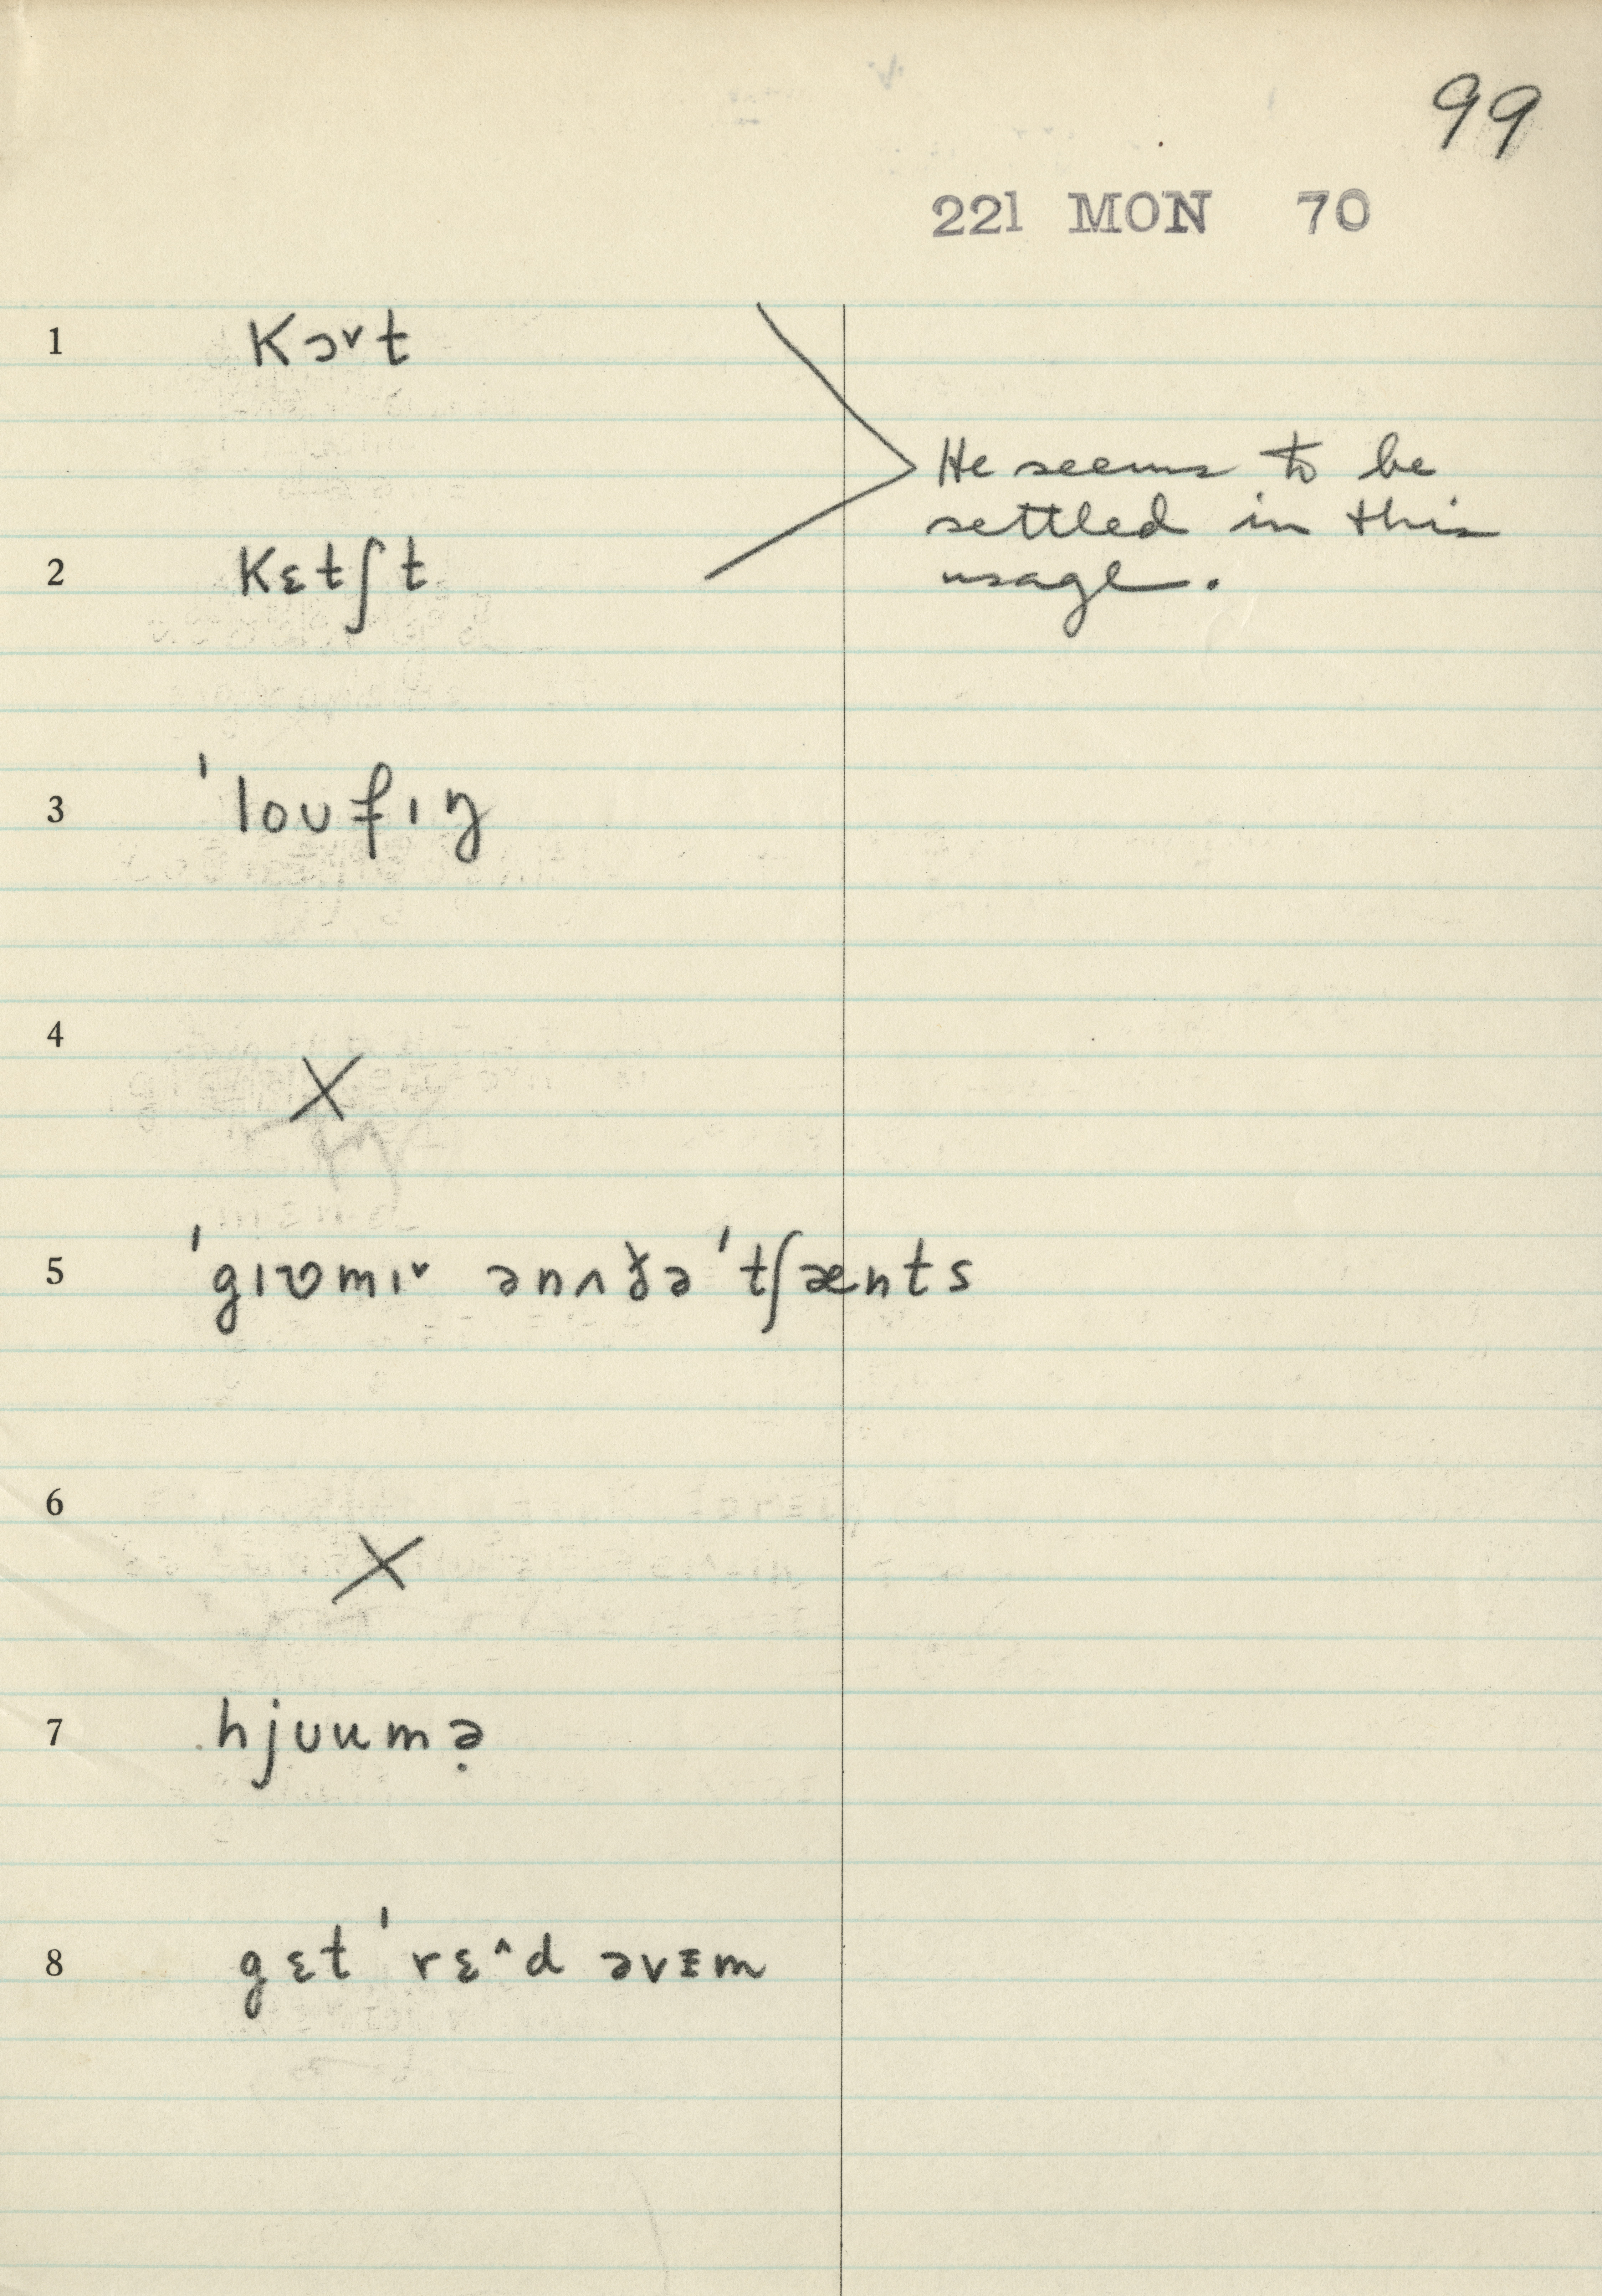 99
221 MON 70
1 kɔ˅t
He seems to be
settled in this
usage.
2 kɛtʃt
3 ˈloʊfɪŋ
4 X
5 ˈgɪʊmɪ˅ ənʌðəˈtʃænts
6 X
7 hjʊumə̣
8 gɛt ˈrɛ^d əvɪm